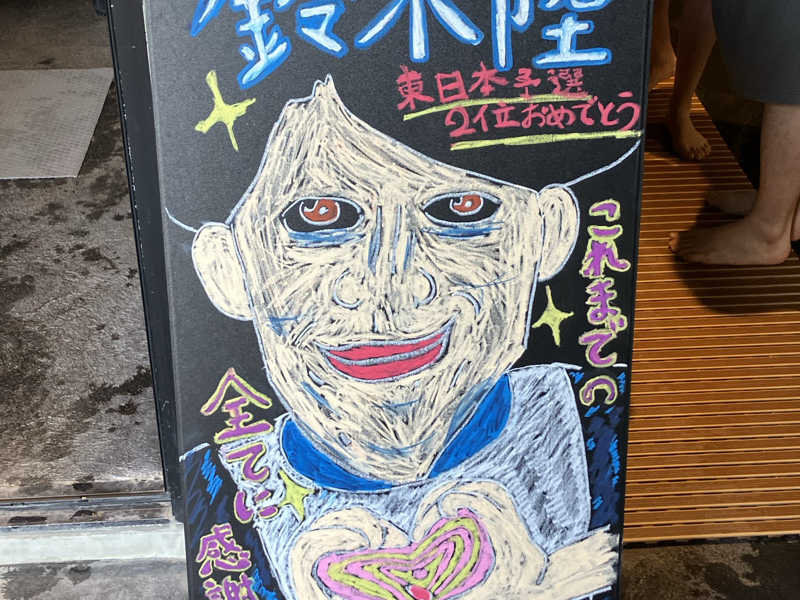 鈴木陸
東日本予選
2位おめでとう
これまでの
全てに
感謝